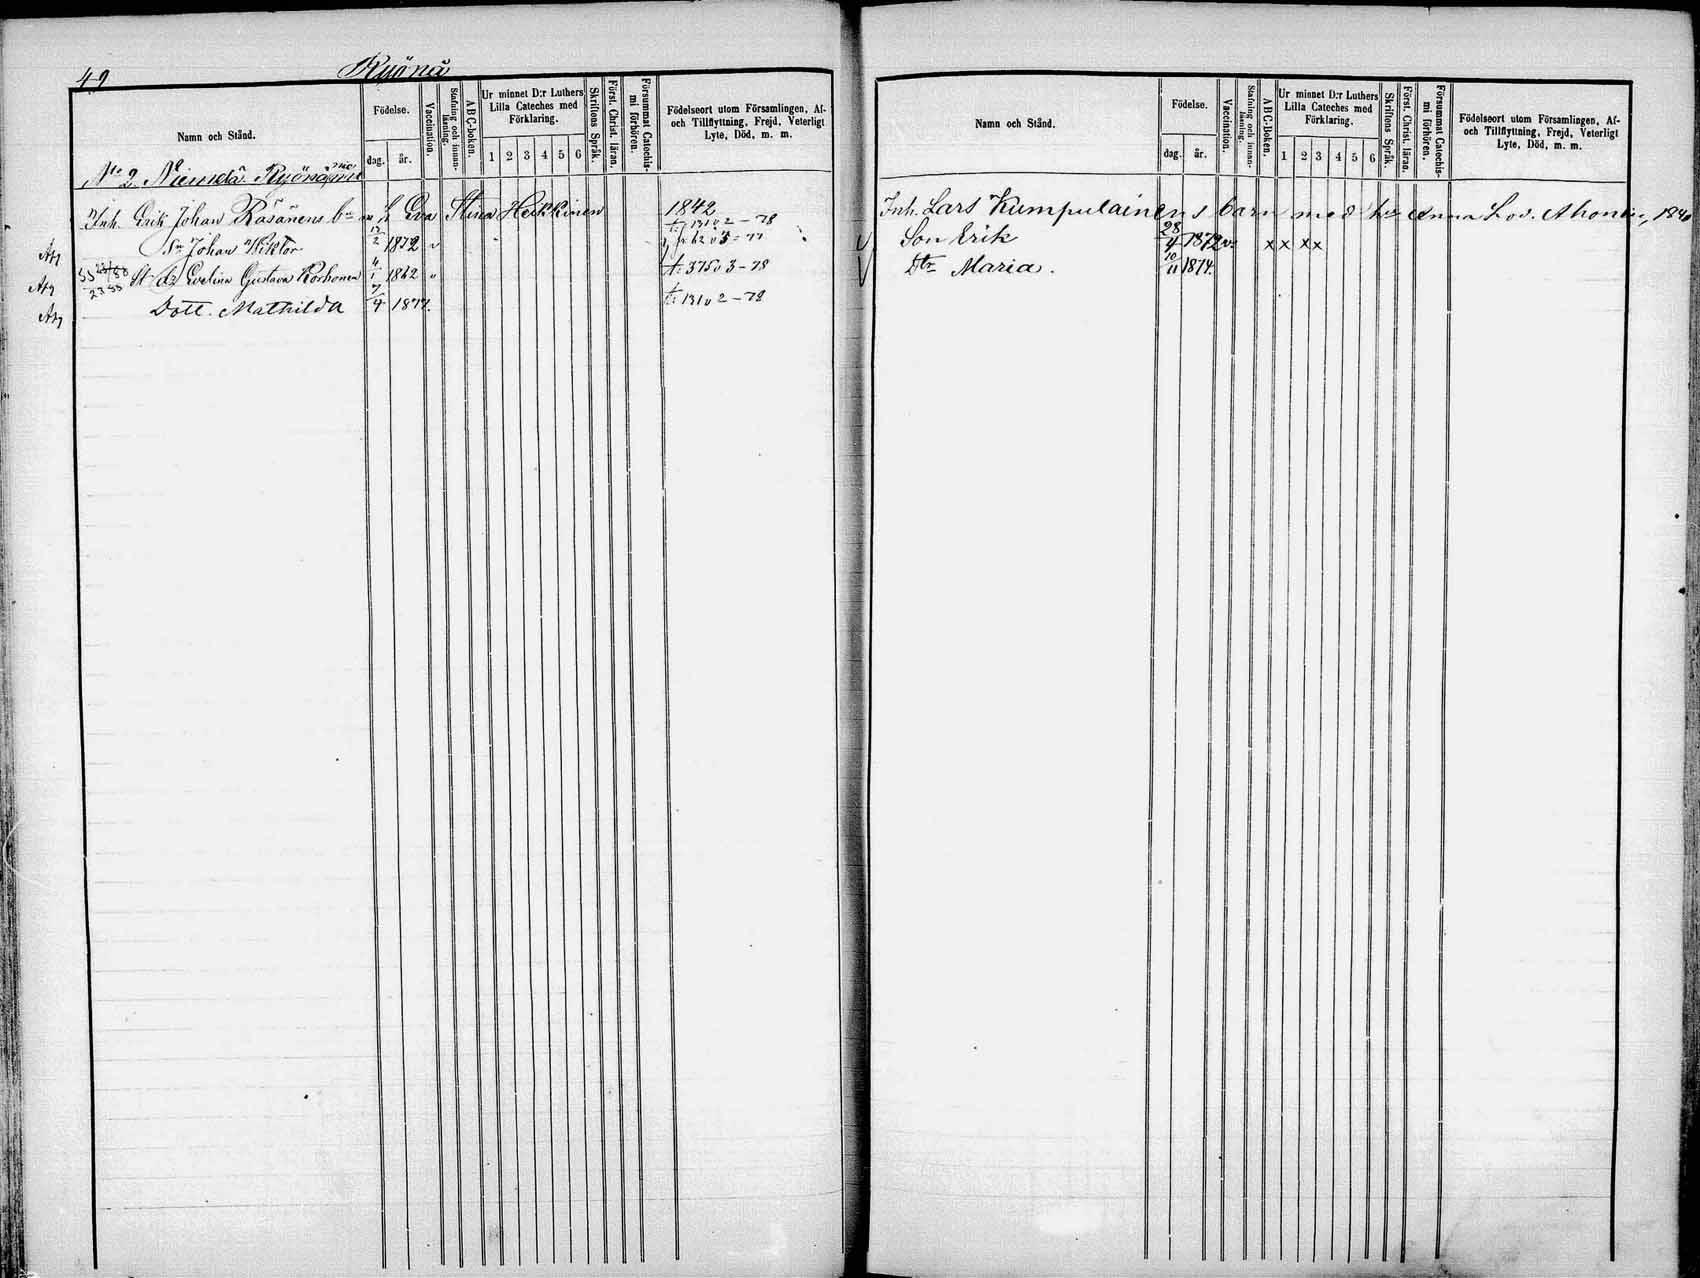 49
Kyönä
Namn och Stånd.
Födelse.
dag.
år.
Vaccination.
Stafning och innanläsning.
ABC-boken.
Ur minnet D:r Luthers Lilla Cateches med Förklaring.
1 2 3 4 5 6
Skriftens Språk.
Först. Christ. läran.
Försummat Catechismi förhören.
Födelseort utom Församlingen, Af- och Tillflyttning, Frejd, Veterligt Lyte, Död, m. m.
No 2 Niemelä
Inh. Erik Johan Räsänens bn m h Eva Stina Heikkinen 1842
Sn Johan Wiktor 12/2 1872 v
Evelina Gustava Korhonen 4/1 1862 v
Dott. Mathilda 7/4 1877.
Namn och Stånd.
Födelse.
dag.
år.
Vaccination.
Stafning och innanläsning.
ABC-Boken.
Ur minnet D:r Luthers Lilla Cateches med Förklaring.
1 2 3 4 5 6
Skriftens Språk.
Först. Christ. läran.
Försummat Catechismi förhören.
Födelseort utom Församlingen, Af- och Tillflyttning, Frejd, Veterligt Lyte, Död, m. m.
Inh. Lars Kumpulainens barn med hu Anna Lov. Ahonen, 1840
Son Erik 28/4 1872 v x x x x
Dtr Maria. 10/11 1874.